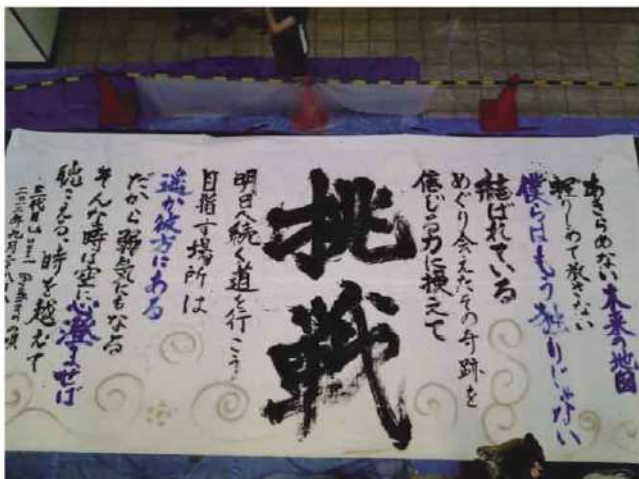 あきらめない未来の地図
握りしめて放さない
僕らはもう独りじゃない
結ばれている
めぐり会えたその奇跡を
信じる力に換えて
挑戦
明日へ続く道を行こう
目指す場所は
遥か彼方にある
だから弱気にもなる
そんな時は空に心澄ませば
聴こえる、時を越えて